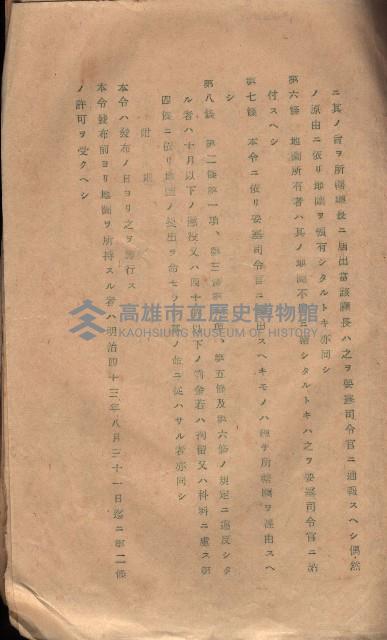 ニ其ノ旨ヲ所轄廳長ニ届出當該廳長ハ之ヲ要塞司令官ニ通報スヘシ偶然
ノ原由ニ依リ地圖ヲ領有シタルトキ亦同シ
第六條 地圖所有者ハ其ノ地圖不用ニ歸シタルトキハ之ヲ要塞司令官ニ
付スヘシ
第七條 本令ニ依リ要塞司令官ニ
スヘキモノハ總テ所轄廳ヲ經由スヘ
シ
第八條 第二條第一項、第三條
、第五條及第六條ノ規定ニ違反シタ
ル者ハ十月以下ノ
又ハ四十
以下ノ罰金若ハ拘留又ハ科料ニ處ス第
四條ニ依リ地圖ノ提出ヲ命セラレ其ノ命ニ從ハサル者亦同シ
附 則
本令ハ發布ノ日ヨリ之ヲ施行ス
本令發布前ヨリ地圖ヲ所持スル者ハ明治四十三年八月三十一日迄ニ第二條
ノ許可ヲ受クヘシ
高雄市立歷史博物館
KAOHSIUNG MUSEUM OF HISTORY